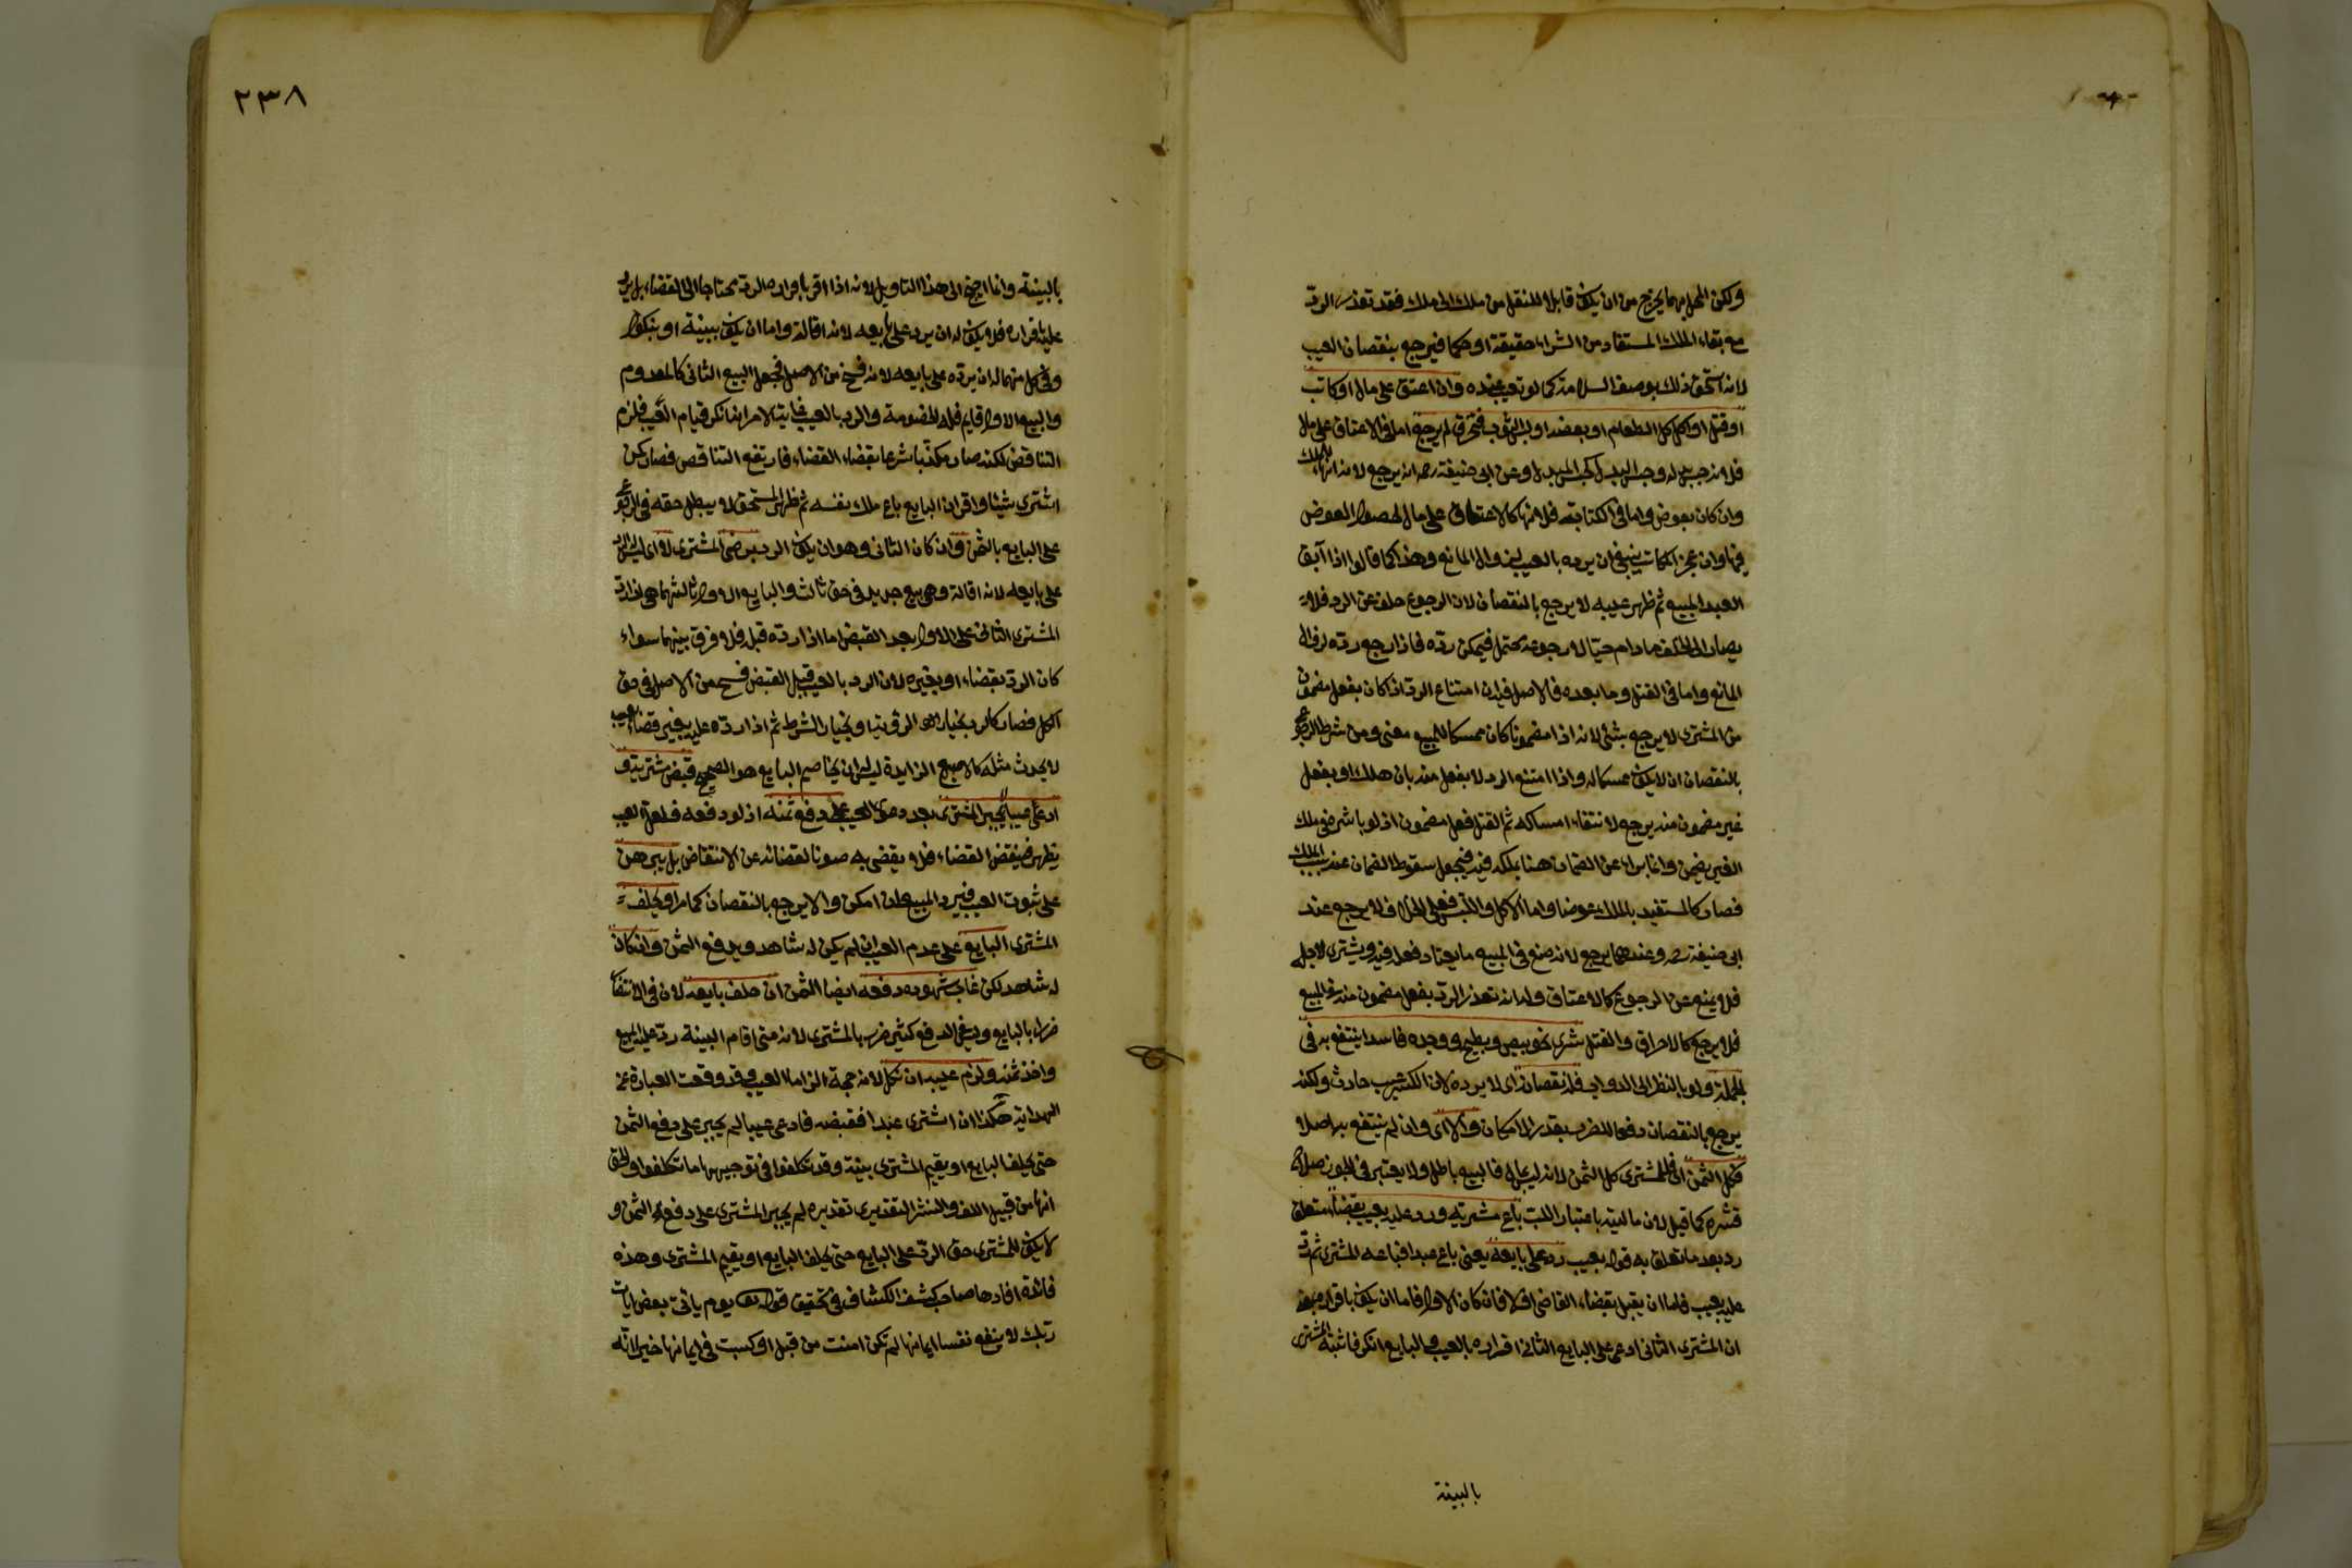 ولكن المحل بهما يخرج من ان يكون قابلا للنقل من ملك الى ملك فقد تعذر الرد
مع بقاء الملك المستفاد من الشراء حقيقة او حكما فيرجع بنقصان العيب
لانه استحق ذلك بوصف السلامة كما لو تعيب عنده وان اعتق على مال او كاتب
او قتل او اكل كل الطعام او بعضه او لبس الثوب فتخرق لم يرجع اما في الاعتاق على مال
فلانه حبس بدله وحبس البدل كحبس المبدل وعن ابي حنيفة رحمه انه يرجع لانه انهاء للملك
وان كان بعوض واما في الكتابة فلانها كالاعتاق على مال لحصول العوض
فيها وان عجز المكاتب ينبغي ان يرده بالعيب لزوال المانع وهذا كما قالوا اذا آبق
العبد المبيع ثم ظهر عيبه لا يرجع بالنقصان لان الرجوع خلف عن الرد فلا
يصار الى الخلف ما دام حيا لان رجوعه محتمل فيمكن رده فاذا رجع رده لزوال
المانع واما في القتل وما بعده فالاصل فيه ان امتناع الرد اذا كان بفعل مضمون
من المشتري لا يرجع بشئ لانه اذا مضمونا كان ممسكا للمبيع معنى ومن شرط الرجوع
بالنقصان ان لا يكون ممسكا له واذا امتنع الرد لا بفعل منه بان هلك او بفعل
غير مضمون منه يرجع لانتفاء امساكه ثم القتل فعل مضمون اذ لو باشر في ملك
الغير يضمن وانما براءه عن الضمان هنا بملكه فيه فيجعل سقوط الضمان عنه بسبب الملك
فصار كالمستفيد بالملك عوضا واما الاكل واللبس فعلى الخلاف لا يرجع عند
ابي حنيفة رحمه وعندهما يرجع لانه صنع في المبيع ما يعتاد فعله فيه ويشتري لاجله
فلا يمنع عن الرجوع كالاعتاق وله انه تعذر الرد بفعل مضمون منه في المبيع
فلا يرجع كالاحراق والقتل شرى نحو بيض وبطيخ ووجده فاسدا ينتفع به في
الجملة ولو بالنظر الى الدواب فله نقصانه اي لا يرده لان الكسر عيب حادث ولكنه
يرجع بالنقصان دفعا للضرر بقدر الامكان والا اي وان لم ينتفع به اصلا
فكل الثمن اي فللمشتري كل الثمن لانه ليس بمال فالبيع باطل ولا يعتبر في الجوز صلاح
قشره كما قيل لان ماليته باعتبار اللب باع مشريه ورد عليه بعيب بقضاء متعلق
رد بعد ما تعلق به قوله بعيب رده على بايعه يعني باع عبدا فباعه المشتري ثم رد
عليه بعيب فاما ان يقبل بقضاء القاضي او لا فان كان الاول فاما ان يكون باقراره بمعنى
ان المشتري الثاني ادعى على البايع الثاني اقراره بالعيب والبايع انكر فاثبته المشتري
بالبينة
٢٣٨
بالبينة وانما احتيج الى هذا التاويل لانه اذا اقر باقراره الرد محتاجا الى القضاء بل يرد
عليه باقراره فلا يكون له ان يرد على بايعه لانه اقالة واما ان يكون ببينة او بنكول
وفي كل منهما له ان يرده على بايعه لانه فسخ من الاصل فجعل البيع الثاني كالمعدوم
والبيع الاول قايم فله الخصومة والرد بالعيب غاية الامر انه انكر قيام العيب فلزم
التناقض لكنه صار مكذبا شرعا بقضاء القضاء فارتفع التناقض فصار كمن
اشترى شيئا واقر ان البايع باع ملك نفسه ثم ظهر المستحق لا يبطل حقه في الرجوع
على البايع بالثمن وان كان الثاني وهو ان يكون الرد برضى المشتري لا اي ليس له الرد
على بايعه لانه اقالة وهي بيع جديد في حق ثالث والبايع الاول ثالثهما هذا اذا رد
المشتري الثاني على الاول بعد القبض اما اذا رده قبله فلا فرق بينهما سواء
كان الرد بقضاء او بغيره لان الرد بالعيب قبل القبض فسخ من الاصل في حق
الكل فصار كالرد بخيار الرؤية او بخيار الشرط ثم اذا رده عليه بغير قضاء بعيب
لا يحدث مثله كالاصبع الزايدة ليس له ان يخاصم البايع هو الصحيح قبض مشتريه و
ادعى عيبا لم يجبر المشتري بعد دعوى العيب على دفع ثمنه اذ لو دفعه فلعل العيب
يظهر فينقض القضاء فلا يقضى به صونا لقضائه عن الانتقاض بل يبرهن
على ثبوت العيب فيرد المبيع ان امكن والا يرجع بالنقصان كما مر او يحلف
المشتري البايع على عدم العيب ان لم يكن له شاهد ويدفع الثمن وان كان
له شاهد لكن غاب شهوده دفعه ايضا الثمن ان حلف بايعه لان في الانتظار
ضررا بالبايع وليس في الدفع كثير ضرر بالمشتري لانه متى اقام البينة رد عليه المبيع
واخذ ثمنه ولزم عيبه ان نكل لانه حجة الزاما العيب وقد وقعت العبارة في
الهداية هكذا ان اشترى عبدا فقبضه فادعى عيبا لم يجبر على دفع الثمن
حتى يحلف البايع او يقيم المشتري بينة وقد تكلفوا في توجيهها ما تكلفوا والحق
انها من قبيل اللف والنشر التقديري تقديره لم يجبر المشتري على دفع الثمن و
لا يكون للمشتري حق الرد على البايع حتى يحلف البايع او يقيم المشتري وهذه
فائدة افادها صاحب كشف الكشاف في تحقيق قوله تعالى يوم ياتي بعض ايات
ربك لا ينفع نفسا ايمانها لم تكن امنت من قبل او كسبت في ايمانها خيرا انه